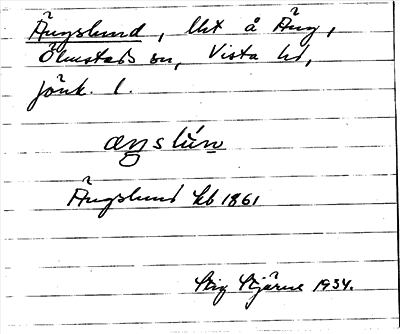 Ängslund, lht å Äng,
Ölmstads sn, Vista hd,
Jönk. l.
æŋslún
Ängslund kb 1861
Stig Stjärne 1934.